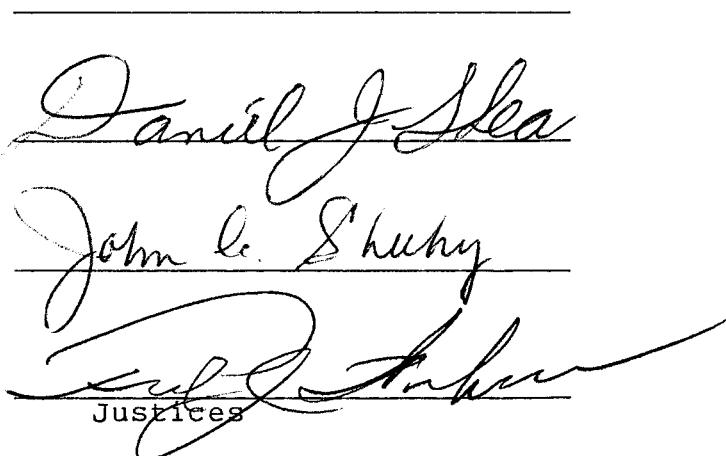 Daniel J. Shea
John C. Sheehy
Justices